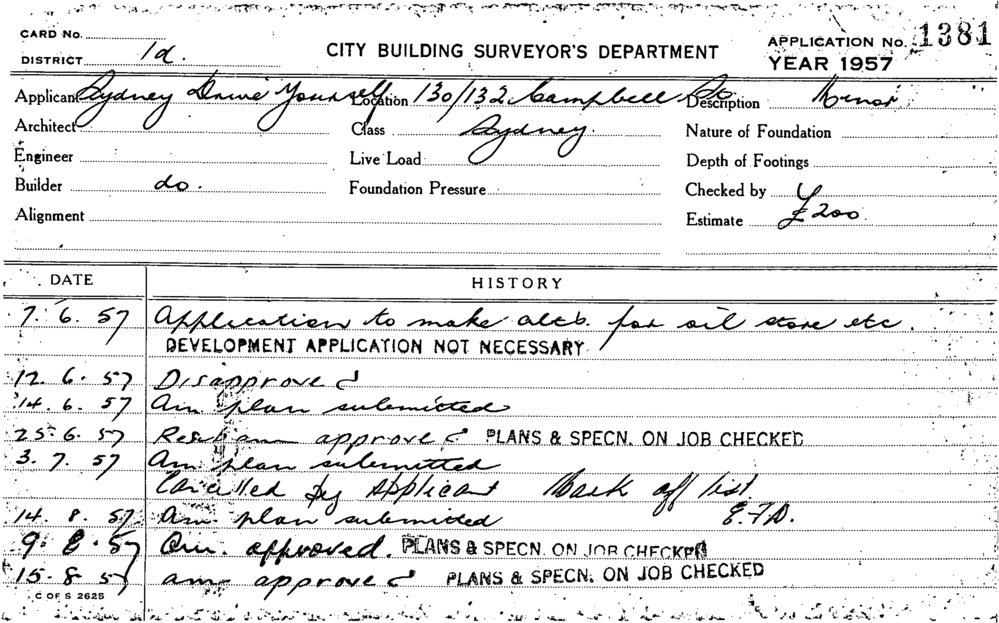 CARD No.
DISTRICT 1d.
CITY BUILDING SURVEYOR'S DEPARTMENT
APPLICATION No. 1381
YEAR 1957
Applicant Sydney Drive Yourself Location 130/132 Campbell St Description Minor
Architect Class Sydney. Nature of Foundation
Engineer Live Load Depth of Footings
Builder do. Foundation Pressure Checked by
Alignment Estimate £200.
DATE HISTORY
7. 6. 57 Application to make alts. for oil store etc.
DEVELOPMENT APPLICATION NOT NECESSARY
12. 6. 57 Disapproved
14. 6. 57 Am plan submitted
25. 6. 57 am approved PLANS & SPECN. ON JOB CHECKED
3. 7. 57 Am plan submitted
Cancelled by Applicant Mark off list.
14. 8. 57 Am. plan submitted E.F.D.
9. 8. 57 Am. approved. PLANS & SPECN. ON JOB CHECKED
15. 8. 57 am approved PLANS & SPECN. ON JOB CHECKED
C OF S 2625